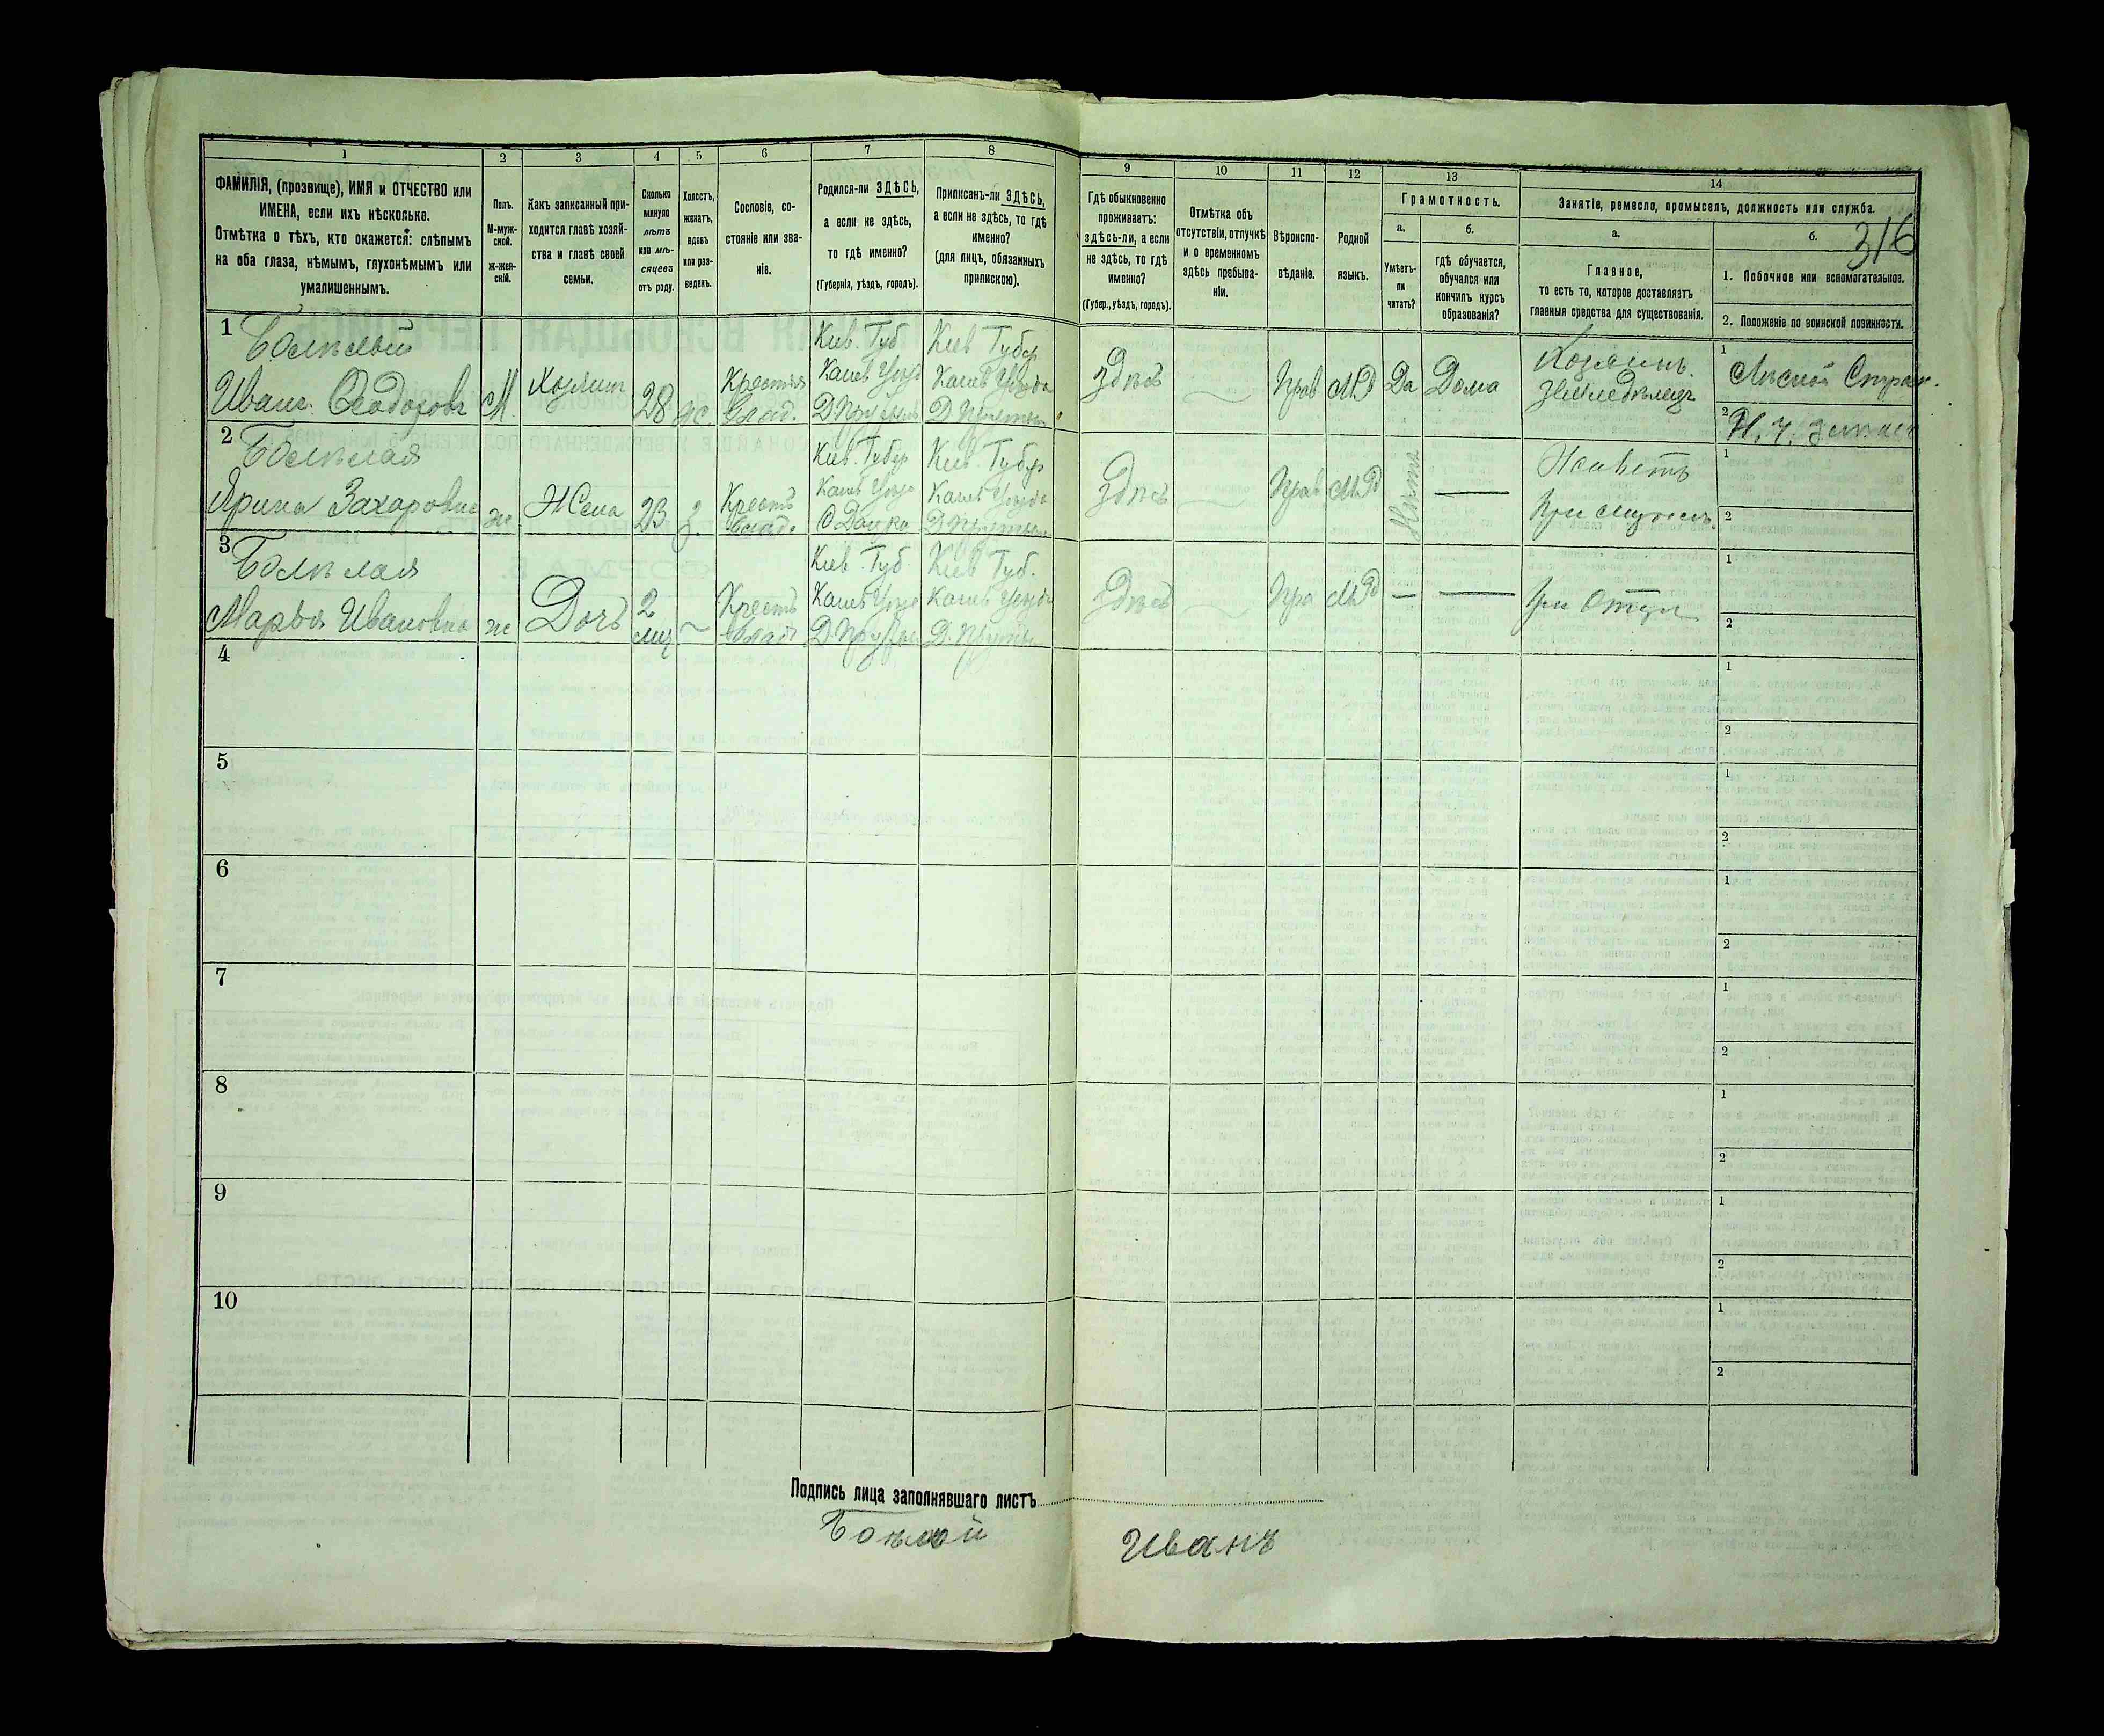 1
2
3
4
5
6
7
8
ФАМИЛІЯ, (прозвище), ИМЯ и ОТЧЕСТВО или
ИМЕНА, если ихъ нѣсколько.
Отмѣтка о тѣхъ, кто окажется: слѣпымъ
на оба глаза, нѣмымъ, глухонѣмымъ или
умалишеннымъ.
Полъ.
М-муж-
ской.
ж-жен-
скій.
Какъ записанный при-
ходится главѣ хозяй-
ства и главѣ своей
семьи.
Сколько
минуло
лѣтъ
или мѣ-
сяцевъ
отъ роду.
Холостъ,
женатъ,
вдовъ
или раз-
веденъ.
Сословіе, со-
стояніе или зва-
ніе.
Родился-ли ЗДѢСЬ,
а если не здѣсь,
то гдѣ именно?
(Губернія, уѣздъ, городъ).
Приписанъ-ли ЗДѢСЬ,
а если не здѣсь, то гдѣ
именно?
(для лицъ, обязанныхъ
припискою).
9
10
11
12
13
14
Гдѣ обыкновенно
проживаетъ:
здѣсь-ли, а если
не здѣсь, то гдѣ
именно?
(Губер., уѣздъ, городъ).
Отмѣтка объ
отсутствіи, отлучкѣ
и о временномъ
здѣсь пребыва-
ніи.
Вѣроиспо-
вѣданіе.
Родной
языкъ.
Грамотность.
а.
Умѣетъ-
ли
читать?
б.
гдѣ обучается,
обучался или
кончилъ курсъ
образованія?
Занятіе, ремесло, промыселъ, должность или служба.
а.
Главное,
то есть то, которое доставляетъ
главныя средства для существованія.
б.
316
1. Побочное или вспомогательное.
2. Положеніе по воинской повинности.
1
Иванъ Феодоровъ
М.
Хозяин
28
ж.
Крестья
Влад.
Кіев. Губ
Канев Уезд
Кіев Губер
Канев Уезда
Здѣсь
Прав
МР
Да
Дома
Хозяинъ.
Земледѣлецъ
1
Лѣсной Страж.
2
2
Ярина Захаровна
ж
Жена
23
З.
Крестъ
Влад.
Кіев. Губер
Канев Уезд
Кіев. Губер
Канев Уезда
Здѣсь
Прав
МР
Нѣтъ
—
Живетъ
При Мужѣ.
1
2
3
Марья Ивановна
ж
Дочь
2
мц
Крестъ
Влад
Кіев. Губ.
Канев Уезд
Кіев Губ.
Канев Уезда
Здѣсь
Пра
МР
—
—
При Отцу
1
2
4
1
2
5
1
2
6
1
2
7
1
2
8
1
2
9
1
2
10
1
2
Подпись лица заполнявшаго листъ
Иванъ